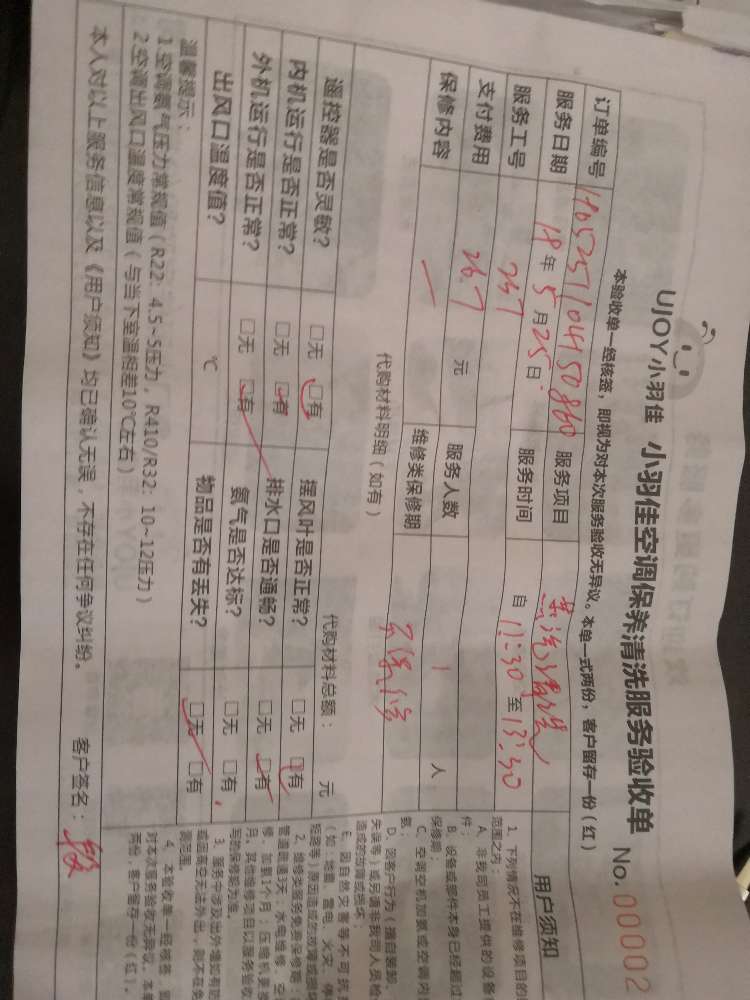 UJOY小羽佳 小羽佳空调保养清洗服务验收单 No. 00002
本验收单一经核签，即视为对本次服务验收无异议。本单一式两份，客户留存一份（红）
订单编号 服务项目
服务日期 18年5月25日 服务时间 自 11:30 至 13:30
服务工号 237
支付费用 26.7 元 服务人数 1 人
保修内容 维修类保修期
代购材料明细（如有） 代购材料总额： 元
遥控器是否灵敏？ □无 □有 摆风叶是否正常？ □无 □有
内机运行是否正常？ □无 □有 排水口是否通畅？ □无 □有
外机运行是否正常？ □无 □有 氨气是否达标？ □无 □有
出风口温度值？ ℃ 物品是否有丢失？ □无 □有
温馨提示：
1.空调氨气压力常规值（R22：4.5~5压力，R410/R32：10~12压力）
2.空调出风口温度常规值（与当下室温相差10℃左右）
本人对以上服务信息以及《用户须知》均已确认无误，不存在任何争议纠纷。 客户签名：
用户须知
1、下列情况不在维修项目的
范围之内：
A、非我司员工提供的设备
B、设备或部件本身已经超过
保修期；
C、空调空机加氨或空调内
氨；
D、因客户行为（擅自装卸、
失误等）或另请非我司人员检
造成的故障或损坏；
E、因自然灾害等不可抗
（如：地震、雷电、火灾、
2、维修类服务免费保修期：
管道疏通3天；水电维修、空
修、加氨1个月；压缩机更换
月。其他维修项目以服务验收
写的保修期为准。
4、本验收单一经核签，
对本次服务验收无异议。本单
两份，客户留存一份（红）。